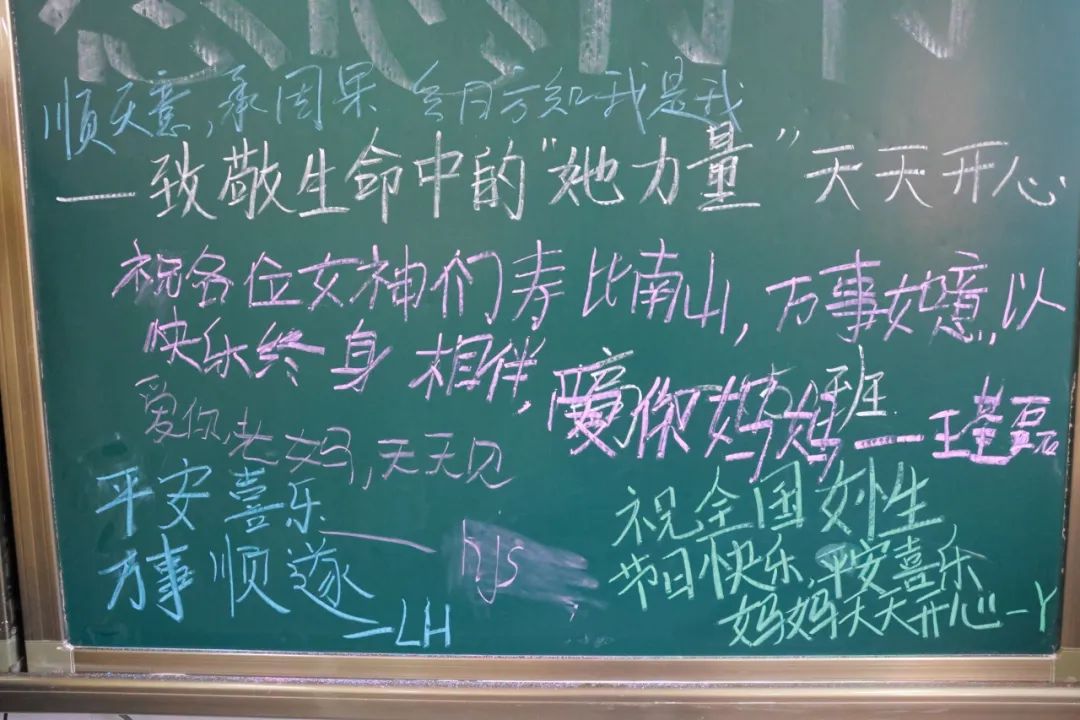 顺天意,承因果 今日方知我是我
一致敬生命中的"她力量" 天天开心
祝各位女神们寿比南山,万事如意,以
快乐终身相伴,
爱你妈妈——王莹磊
爱你,老妈,天天见
平安喜乐
万事顺遂
—LH
hjs
祝全国女生
节日快乐,平安喜乐
妈妈天天开心-Y